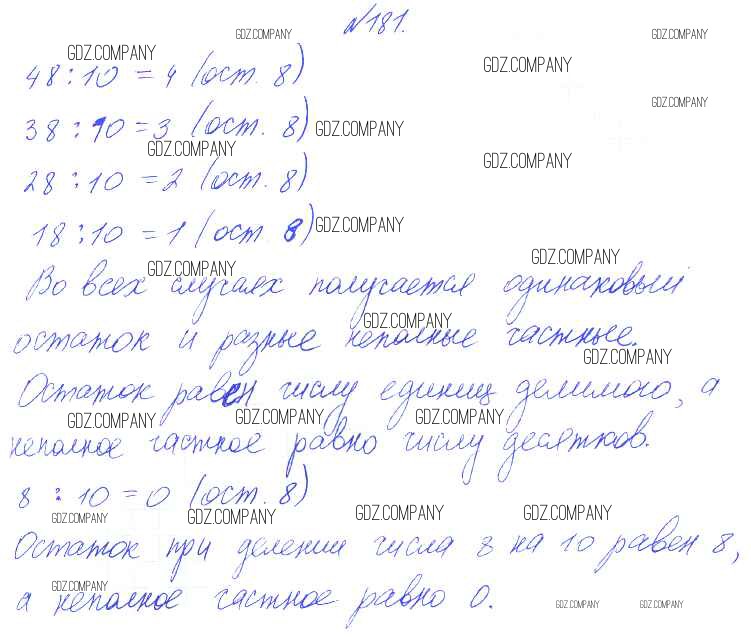 №181.
GDZ.COMPANY GDZ.COMPANY GDZ.COMPANY
48:10=4 (ост. 8) GDZ.COMPANY
GDZ.COMPANY
38:10=3 (ост. 8) GDZ.COMPANY
GDZ.COMPANY GDZ.COMPANY
28:10=2 (ост. 8)
18:10=1 (ост. 8) GDZ.COMPANY
GDZ.COMPANY GDZ.COMPANY
Во всех случаях получается одинаковый
GDZ.COMPANY
остаток и разные неполные частные.
GDZ.COMPANY
Остаток равен числу единиц делимого, а
GDZ.COMPANY GDZ.COMPANY GDZ.COMPANY
неполное частное равно числу десятков.
8:10=0 (ост. 8)
GDZ.COMPANY GDZ.COMPANY GDZ.COMPANY GDZ.COMPANY
Остаток при делении числа 8 на 10 равен 8,
GDZ.COMPANY
а неполное частное равно 0.
GDZ.COMPANY GDZ.COMPANY